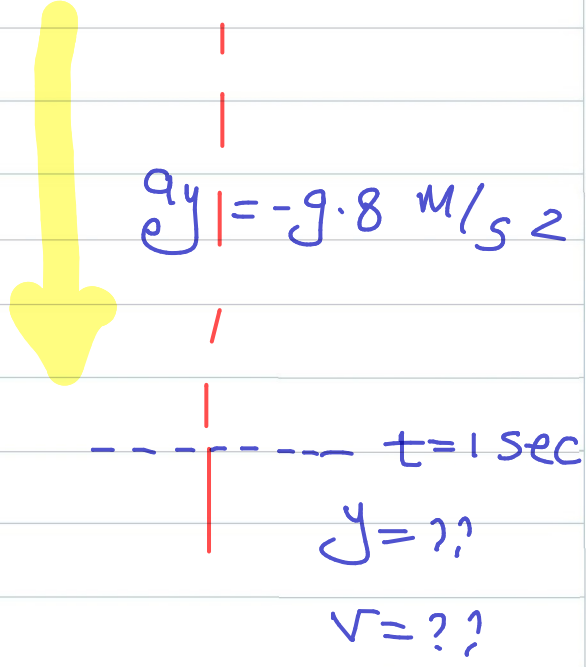 ay = -9.8 m/s2
t = 1 sec
y = ??
v = ??